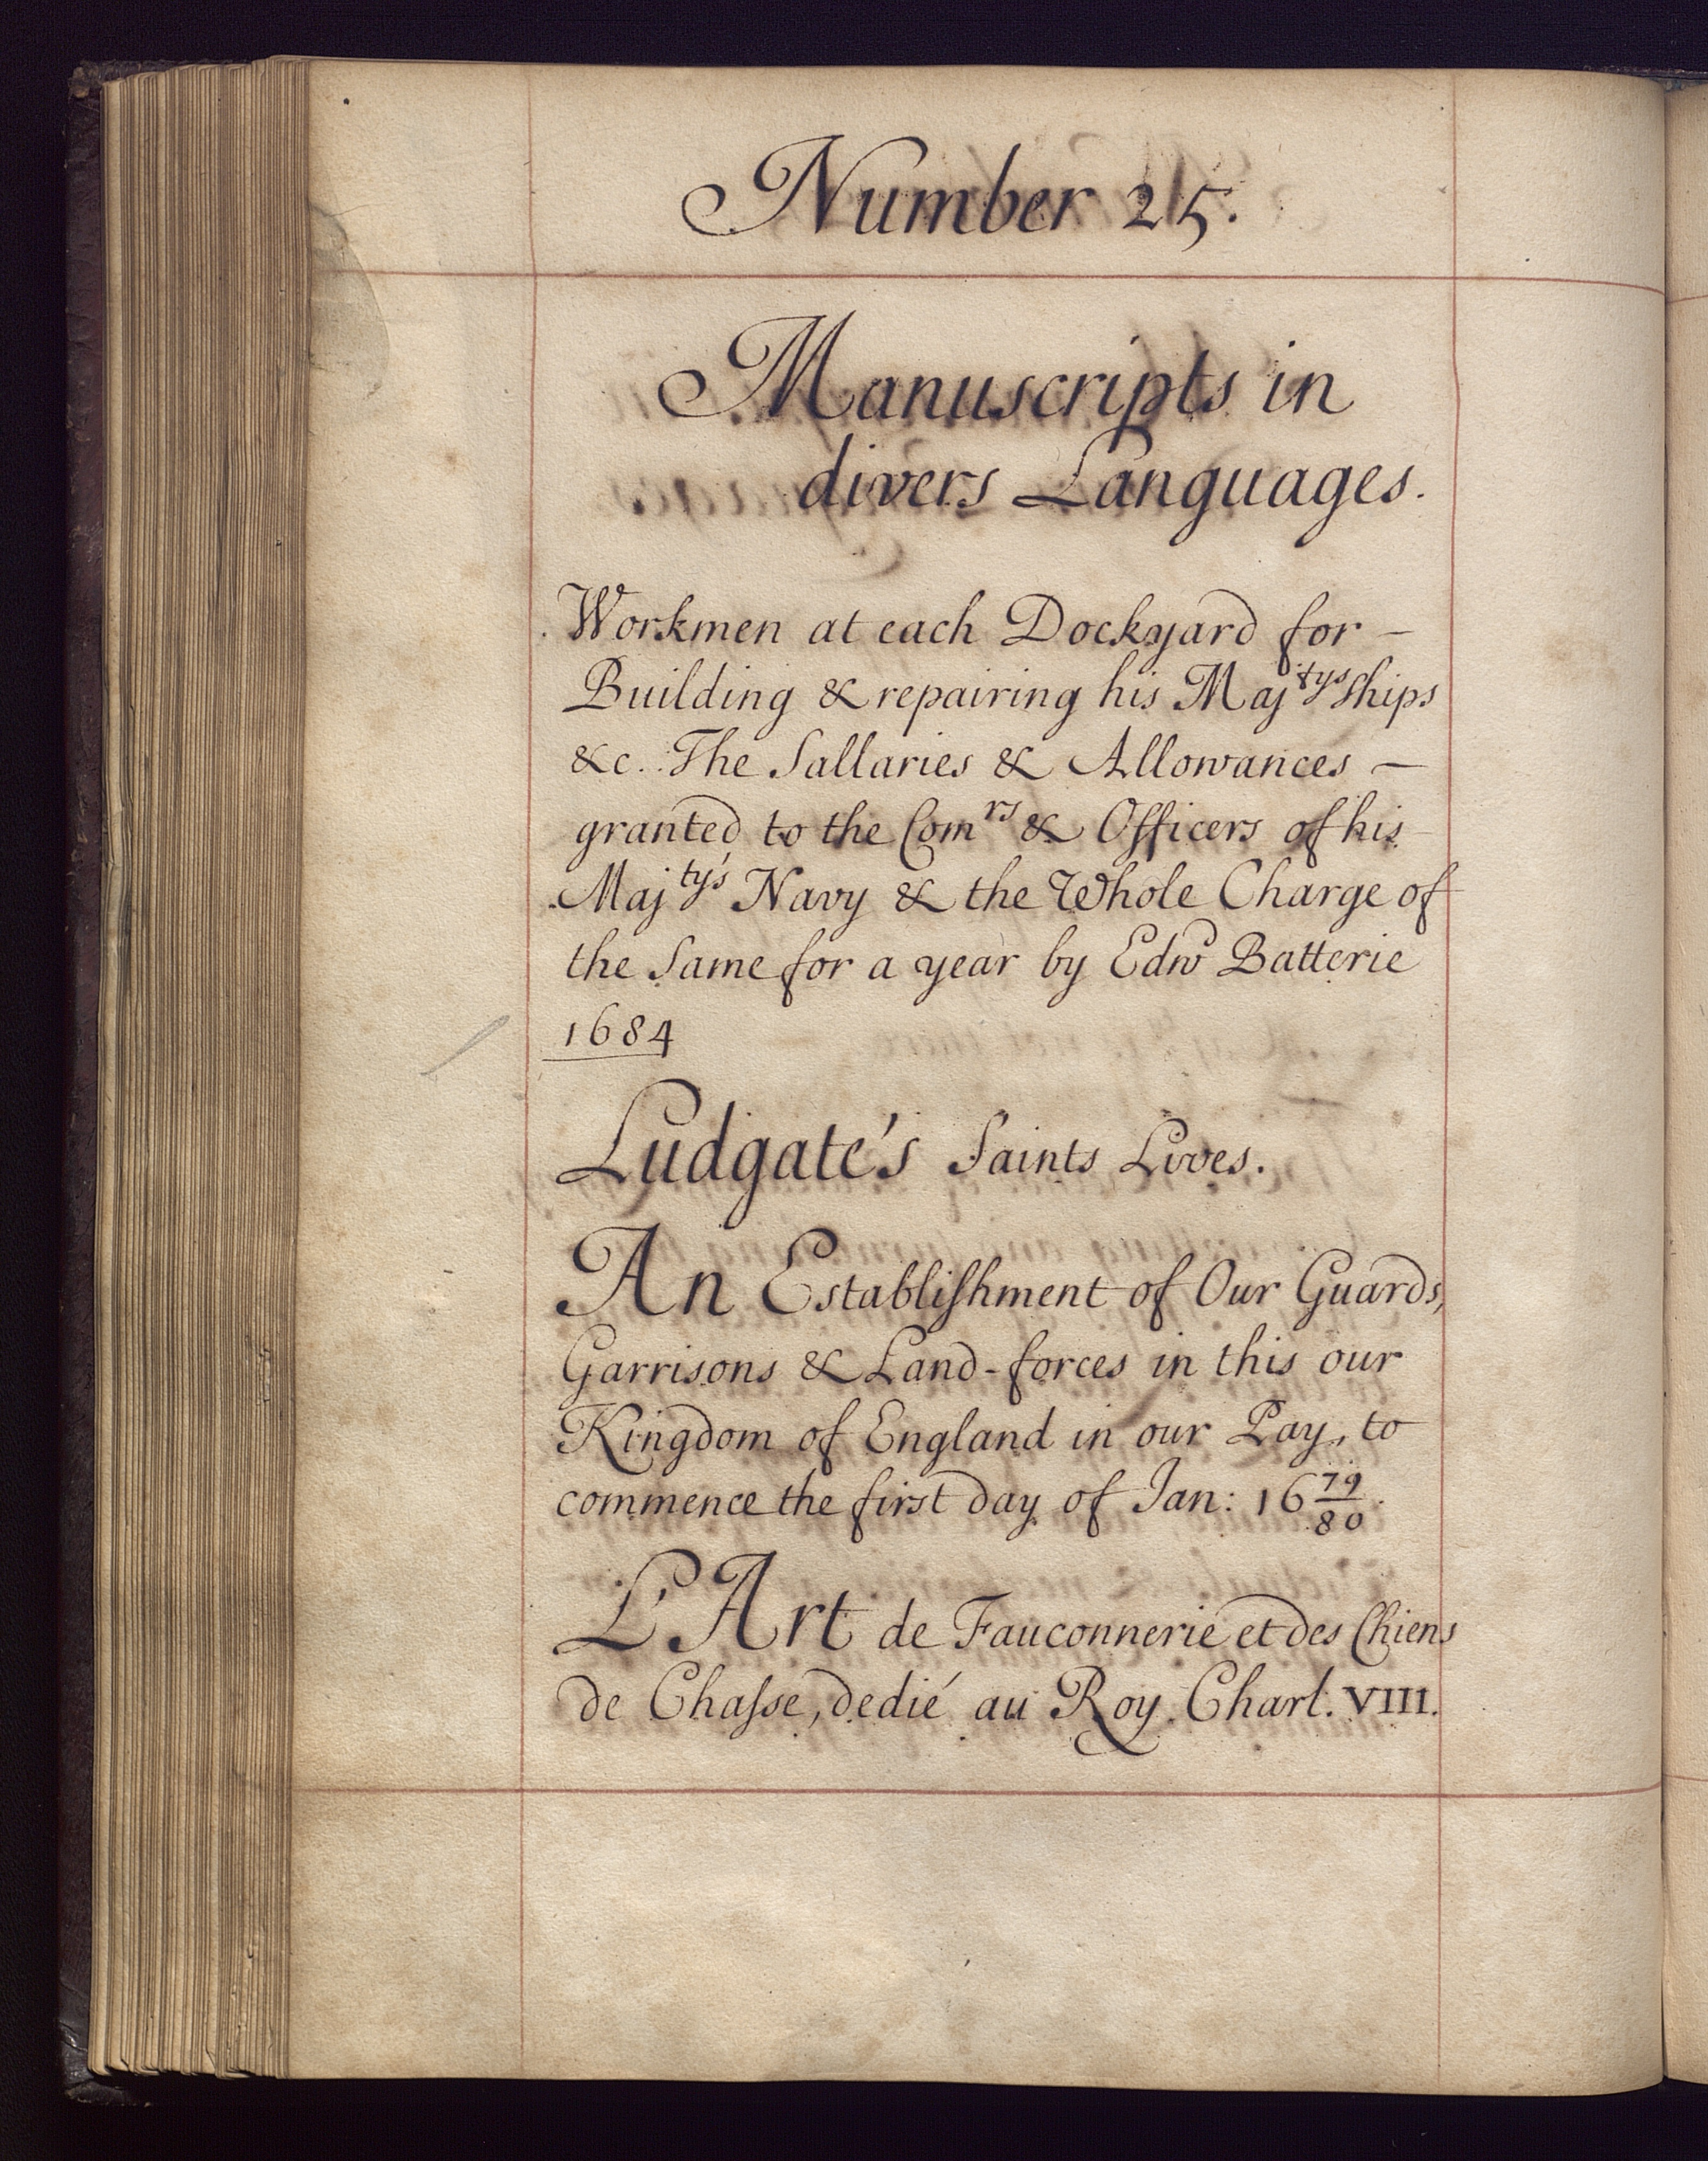 Number 25.
Manuscripts in
divers Languages.
Workmen at each Dockyard for –
Building & repairing his Maj^tys Ships
&c. The Sallaries & Allowances –
granted to the Com^rs & Officers of his
Maj^ty's Navy & the Whole Charge of
the Same for a year by Edw^d Batterie
1684
Ludgate's Saints Lives.
An Establiſhment of Our Guards,
Garrisons & Land-forces in this our
Kingdom of England in our Pay, to
commence the first day of Jan: 16 79/80.
L'Art de Fauconnerie et des Chiens
de Chaſse, dedié au Roy Charl. VIII.